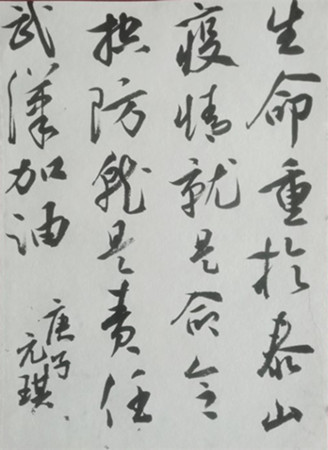 生命重於泰山
疫情就是命令
控防就是责任
武漢加油
庚子
元琪